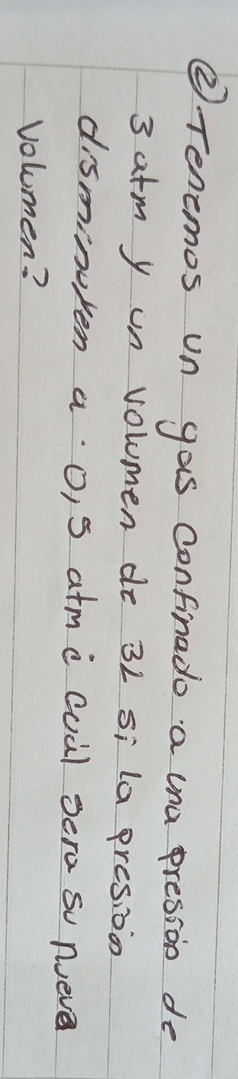 ② Tenemos un gas confinado a una presión de
3 atm y un volumen de 3L si la presión
disminuyen a 0,5 atm ¿ cuál sera su nueva
volumen?